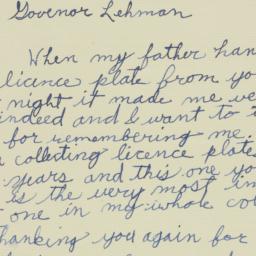 Govenor Lehman
When my father han
licence plate from yo
night it made me ve
indeed and I want to t
for remembering me.
collecting licence plates
years and this one yo
is the very most im
one in my whole co
hanking you again for